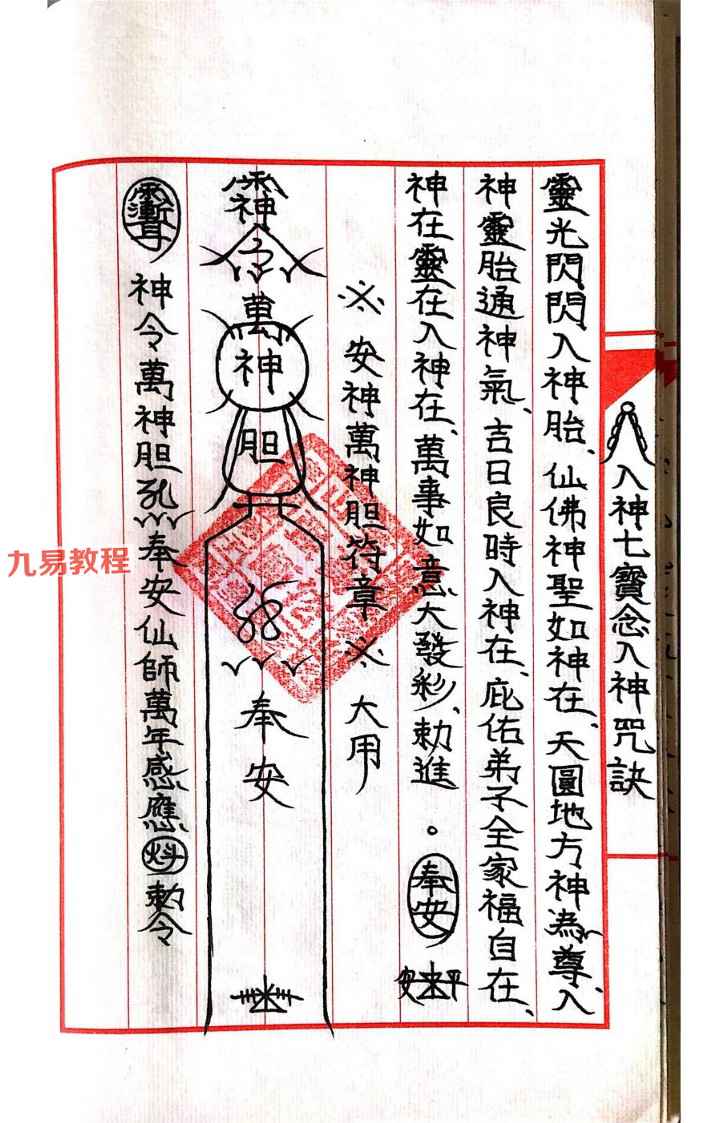 入神七寶念入神咒訣
靈光閃閃入神胎、仙佛神聖如神在、天圓地方神為尊、入
神靈胎通神氣、吉日良時入神在、庇佑弟子全家福自在、
神在靈在入神在、萬事如意大發彩、勅進。奉安
安 平
※安神萬神胆符章※大用
神令萬神胆
奉安
神令萬神胆 奉安仙師萬年感應 勅令
九易教程